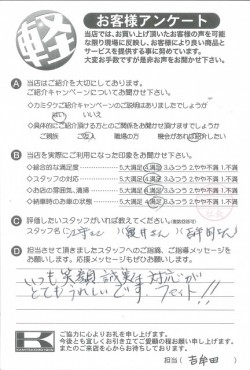 軽
お客様アンケート
当店では、お買い上げ頂いたお客様の声を可能
な限り現場に反映し、お客様により良い商品と
サービスを提供する事に努めています。
大変お手数ですが是非お声をお聞かせ下さい。
A 当店はご紹介を大切にしております。
ご紹介キャンペーンについてお聞かせ下さい
◇カミタケご紹介キャンペーンのご説明はありましたでしょうか
はい いいえ
◇具体的にご紹介頂ける方とのご関係をお聞かせ頂けますでしょうか
ご親族 ご友人 職場の方 機会があれば紹介したい
B 当店を実際にご利用になった印象をお聞かせ下さい。
◇総合的な満足度 5.大満足 4.満足 3.ふつう 2.やや不満 1.不満
◇スタッフの対応 5.大満足 4.満足 3.ふつう 2.やや不満 1.不満
◇お店の雰囲気、清掃 5.大満足 4.満足 3.ふつう 2.やや不満 1.不満
◇納車時のお車の状態 5.大満足 4.満足 3.ふつう 2.やや不満 1.不満
C 評価したいスタッフがいれば教えてください。(複数回答可)
スタッフ名( )( さん )( 吉牟田さん )
D 担当させて頂きましたスタッフへのご指摘、ご指導メッセージを
お願いします。応援メッセージもぜひお願いします。
いつも笑顔 誠実な対応が
とてもうれしいです ファイト!!
K
ご協力に心よりお礼を申し上げます。
今後とも宜しくお引き立てご愛顧の程お願い申し上げます。
またのご来店を心からお待ちしております。
担当( 吉牟田 )